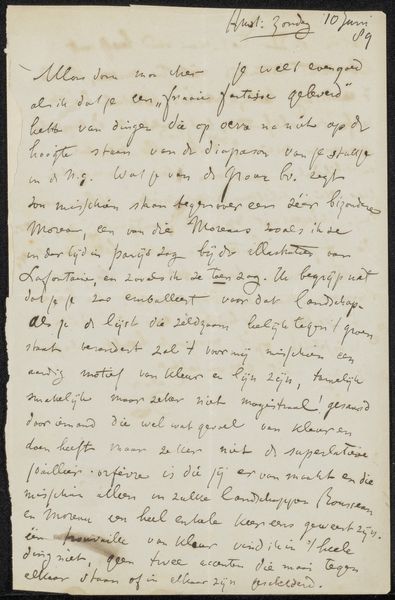 Amst: Zondag 10 Juni
89
Allons donc mon cher Je weet evengoed
als ik dat je een "fraaie fantaisie geleverd"
hebt van dingen die op verre na niet op de
hoogte staan van de diapason van je stukje
in de N.G. Wat je van de Graaz bv. zegt
zou misschien slaan tegenover een zéér bizondere
Moreau, een van die Moreaus zooals ik ze
in der tijd in parijs zag bij de illustraties van
Lafontaine, en zooals ik ze toen zag. Ik begrijp niet
dat je je zoo emballeert voor dat landschap.
Als je de lijst die zeldzaam leelijk tegen 't groen
staat verandert zal 't voor mij misschien een
aardig motief van kleur en lijn zijn, tamelijk
smakelijk maar zeker niet magistraal! gesausd
door iemand die wel wat gevoel van kleur en
doen heeft maar zeker niet de superlatieve
joaillier-orfèvre is die jij er van maakt en die
misschien alleen in zulke landschappen Rousseau
en Moreau een heel enkele keer eens geweest zijn.
één trouvaille van kleur vind ik in 't heele
ding niet, geen twee accenten die mooi tegen
elkaar staan of in elkaar zijn geschilderd.